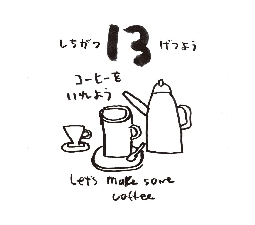 しちがつ 13 げつよう
コーヒーを
いれよう
Let's make some
coffee